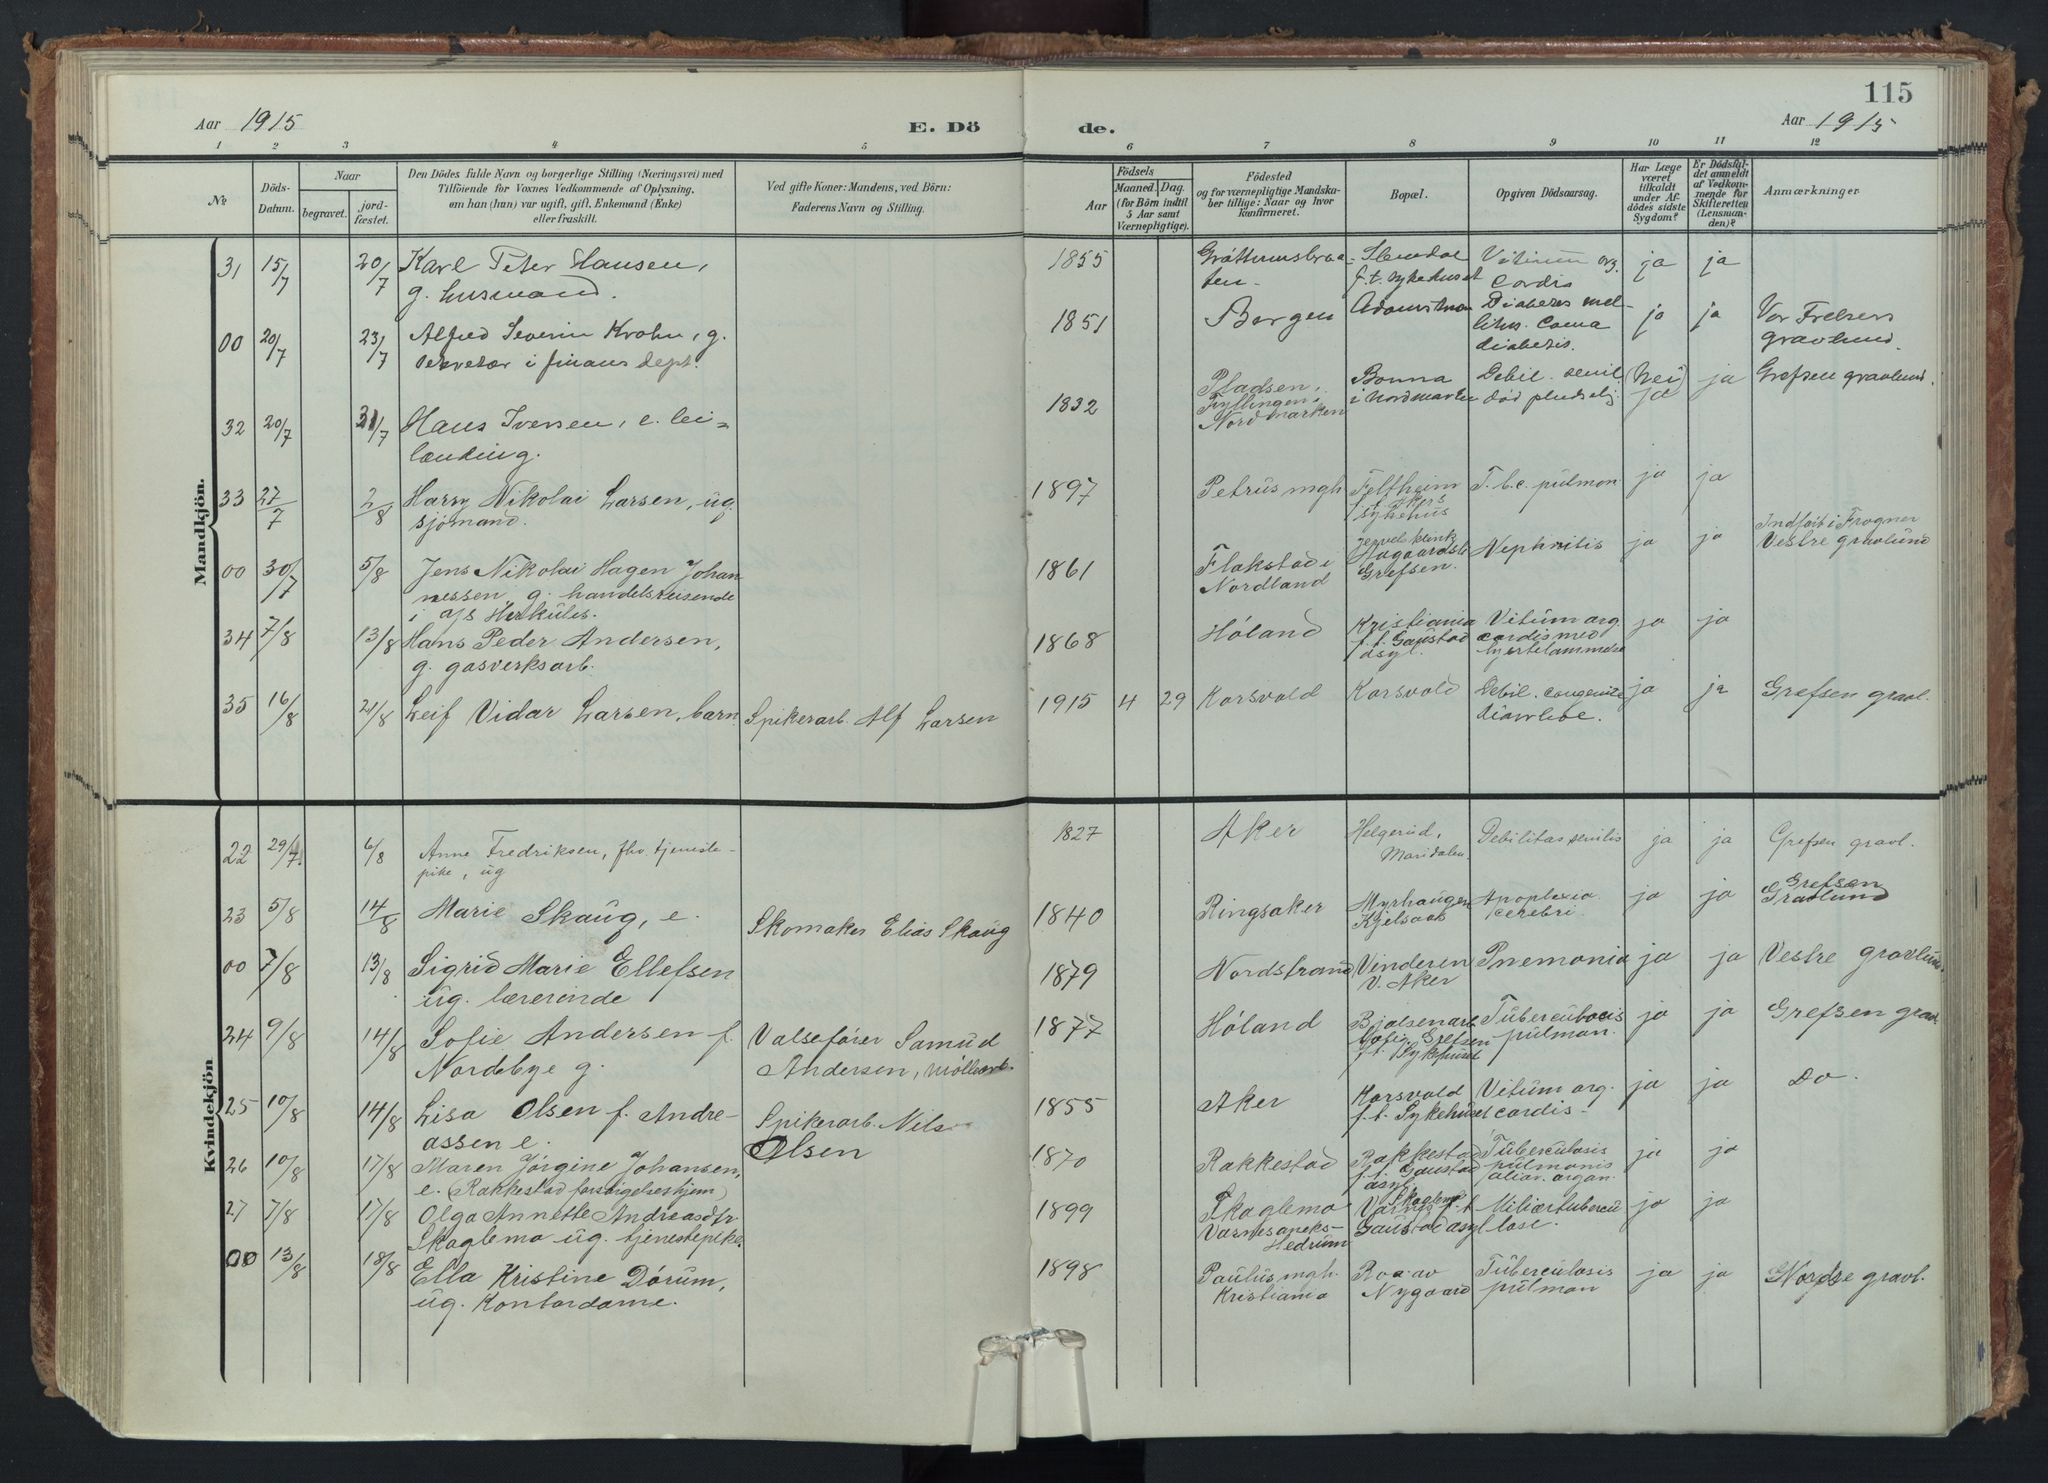 115
Aar 1915
E. Dö
de.
Aar 1915
1 2 3 4 5 6 7 8 9 10 11 12
№
Döds-
Datum.
Naar
begravet.
jord-
fæstet.
Den Dödes fulde Navn og borgerlige Stilling (Næringsvei) med
Tilföiende for Voxnes Vedkommende af Oplysning,
om han (hun) var ugift, gift, Enkemand (Enke)
eller fraskilt.
Ved gifte Koner: Mandens, ved Börn:
Faderens Navn og Stilling.
Födsels
Aar
Maaned. Dag.
(for Börn indtil
5 Aar samt
Værnepligtige).
Födested
og for værnepligtige Mandska-
ber tillige: Naar og hvor
konfirmeret.
Bopæl.
Opgiven Dödsaarsag.
Har Læge
været
tilkaldt
under Af-
dödes sidste
Sygdom?
Er Dödsfal-
det anmeldt
af Vedkom-
mende for
Skifteretten
(Lensman-
den)?
Anmærkninger
Mandkjön.
31 15/7 20/7 Karl Peter Hansen, 1855 ja ja
g. husmand. f.t. sykehuset cordis
00 20/7 23/7 Alfred Severin Krohn, g. 1851 Bergen Diabetes mel- ja ja Vor Frelsers
sekretær i finans dept. litus. Coma gravlund.
diabetis.
32 20/7 31/7 Hans Iversen, e. lei- 1832 Pladsen, Bonna Debil. senil (Nei) ja ja Grefsen gravlund.
lænding. Fyllingen i i Nordmarken død pludselig
Nordmarken
33 27/7 2/8 Harry Nikolai Larsen, ug. 1897 Petrus mgh Feltheim T.b.c. pulmon ja ja
sjømand. f.t. Akers
sykehus
00 30/7 5/8 Jens Nikolai Hagen Johan- 1861 Flakstad i Nephritis ja ja Indført i Frogner
nessen, g. handelsreisende Nordland Grefsen. Vestre gravlund
i a/s Herkules.
34 7/8 13/8 Hans Peder Andersen, 1868 Høland Kristiania Vitium org. ja ja
g. gasverksarb. f.t. Gaustad cordis med
asyl. hjertelammelse
35 16/8 21/8 Leif Vidar Larsen, barn. Spikerarb. Alf Larsen 1915 4 29 Korsvold Korsvold Debil. congenita ja ja Grefsen gravl.
diarrhoe.
Kvindekjön
22 29/7. 6/8 Anne Fredriksen, fhv. tjeneste- 1827 Aker Helgerud, Debilitas senilis ja ja Grefsen gravl.
pike, ug Maridalen.
23 5/8 14/8 Marie Skaug, e. Skomaker Elias Skaug 1840 Ringsaker Myrhaugen Apoplexia ja ja Grefsen
Kjelsaas cerebri. Gravlund
00 7/8 13/8 Sigrid Marie Ellefsen 1879 Nordstrand Vinderen Pnemonia ja ja Vestre gravlund.
ug. lærerinde V. Aker
24 9/8 14/8 Sofie Andersen f. Valsefører Samuel 1877 Høland Tuberculosis ja ja Grefsen gravl.
Nordebye g. Andersen, Grefsen pulman.
f.t. Sykehuset
25 10/8 14/8 Lisa Olsen f. Andre- Spikerarb. Nils 1855 Aker Korsvold Vitium org. ja ja Do.
assen e. Olsen f.t. Sykehuset cordis
26 10/8 17/8 Maren Jørgine Johansen, 1870 Rakkestad Rakkestad Tuberculosis ja ja
e. (Rakkestad forsørgelseshjem) f.t. Gaustad pulmonis
asyl aliar. organ.
27 7/8 17/8 Olga Annette Andreasdtr. 1899 Skaglemo f.t. Miliærtubercu ja ja
Skaglemo ug. tjenestepike. Gaustad asyl lose.
Hedrum
00 13/8 18/8 Ella Kristine Dørum, 1898 Paulus mgh. Roa av Tuberculosis ja ja Nordre gravl.
ug. Kontordame. Kristiania Nygaard pulman